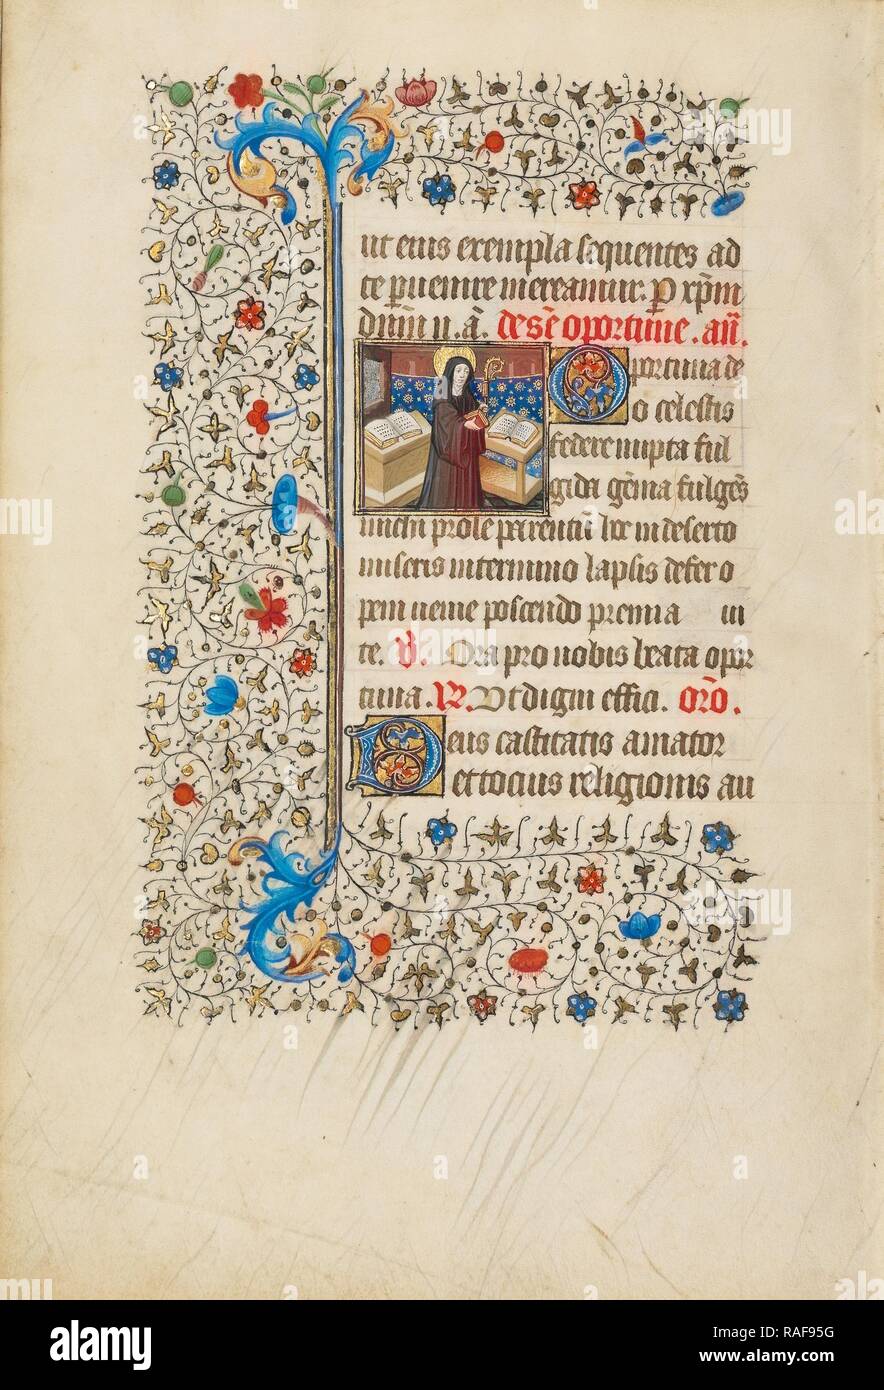 ut eius exempla sequentes ad
te puenire mereamur. P xpm
dnm n. a. de sce oportune. añ.
Oportuna de
o celestis
federe nupta ful
gida gēma fulgēs
prole parentū hoc in deserto
miseris in termino lapsis defer o
pem neme poscendo premia in
te. V. Ora pro nobis beata opor
tuna. R. Vt digni effici. orō.
Deus castitatis amator
et tocius religionis au
alamy
a
a
alamy
Image ID: RAF95G
www.alamy.com